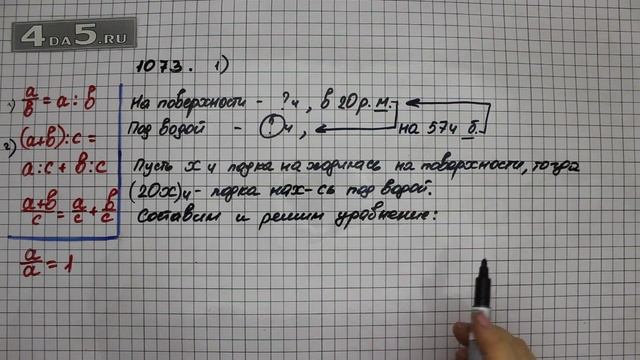 4DA5.RU
1073. 1)
1) a/b = a : b
2) (a+b):c =
a:c + b:c
a+b/c = a/c + b/c
a/a = 1
На поверхности - ?ч, в 20р. м.
Под водой - ?ч, на 57ч б.
Пусть x ч лодка находилась на поверхности, тогда
(20x)ч - лодка нах-сь под водой.
Составим и решим уравнение: